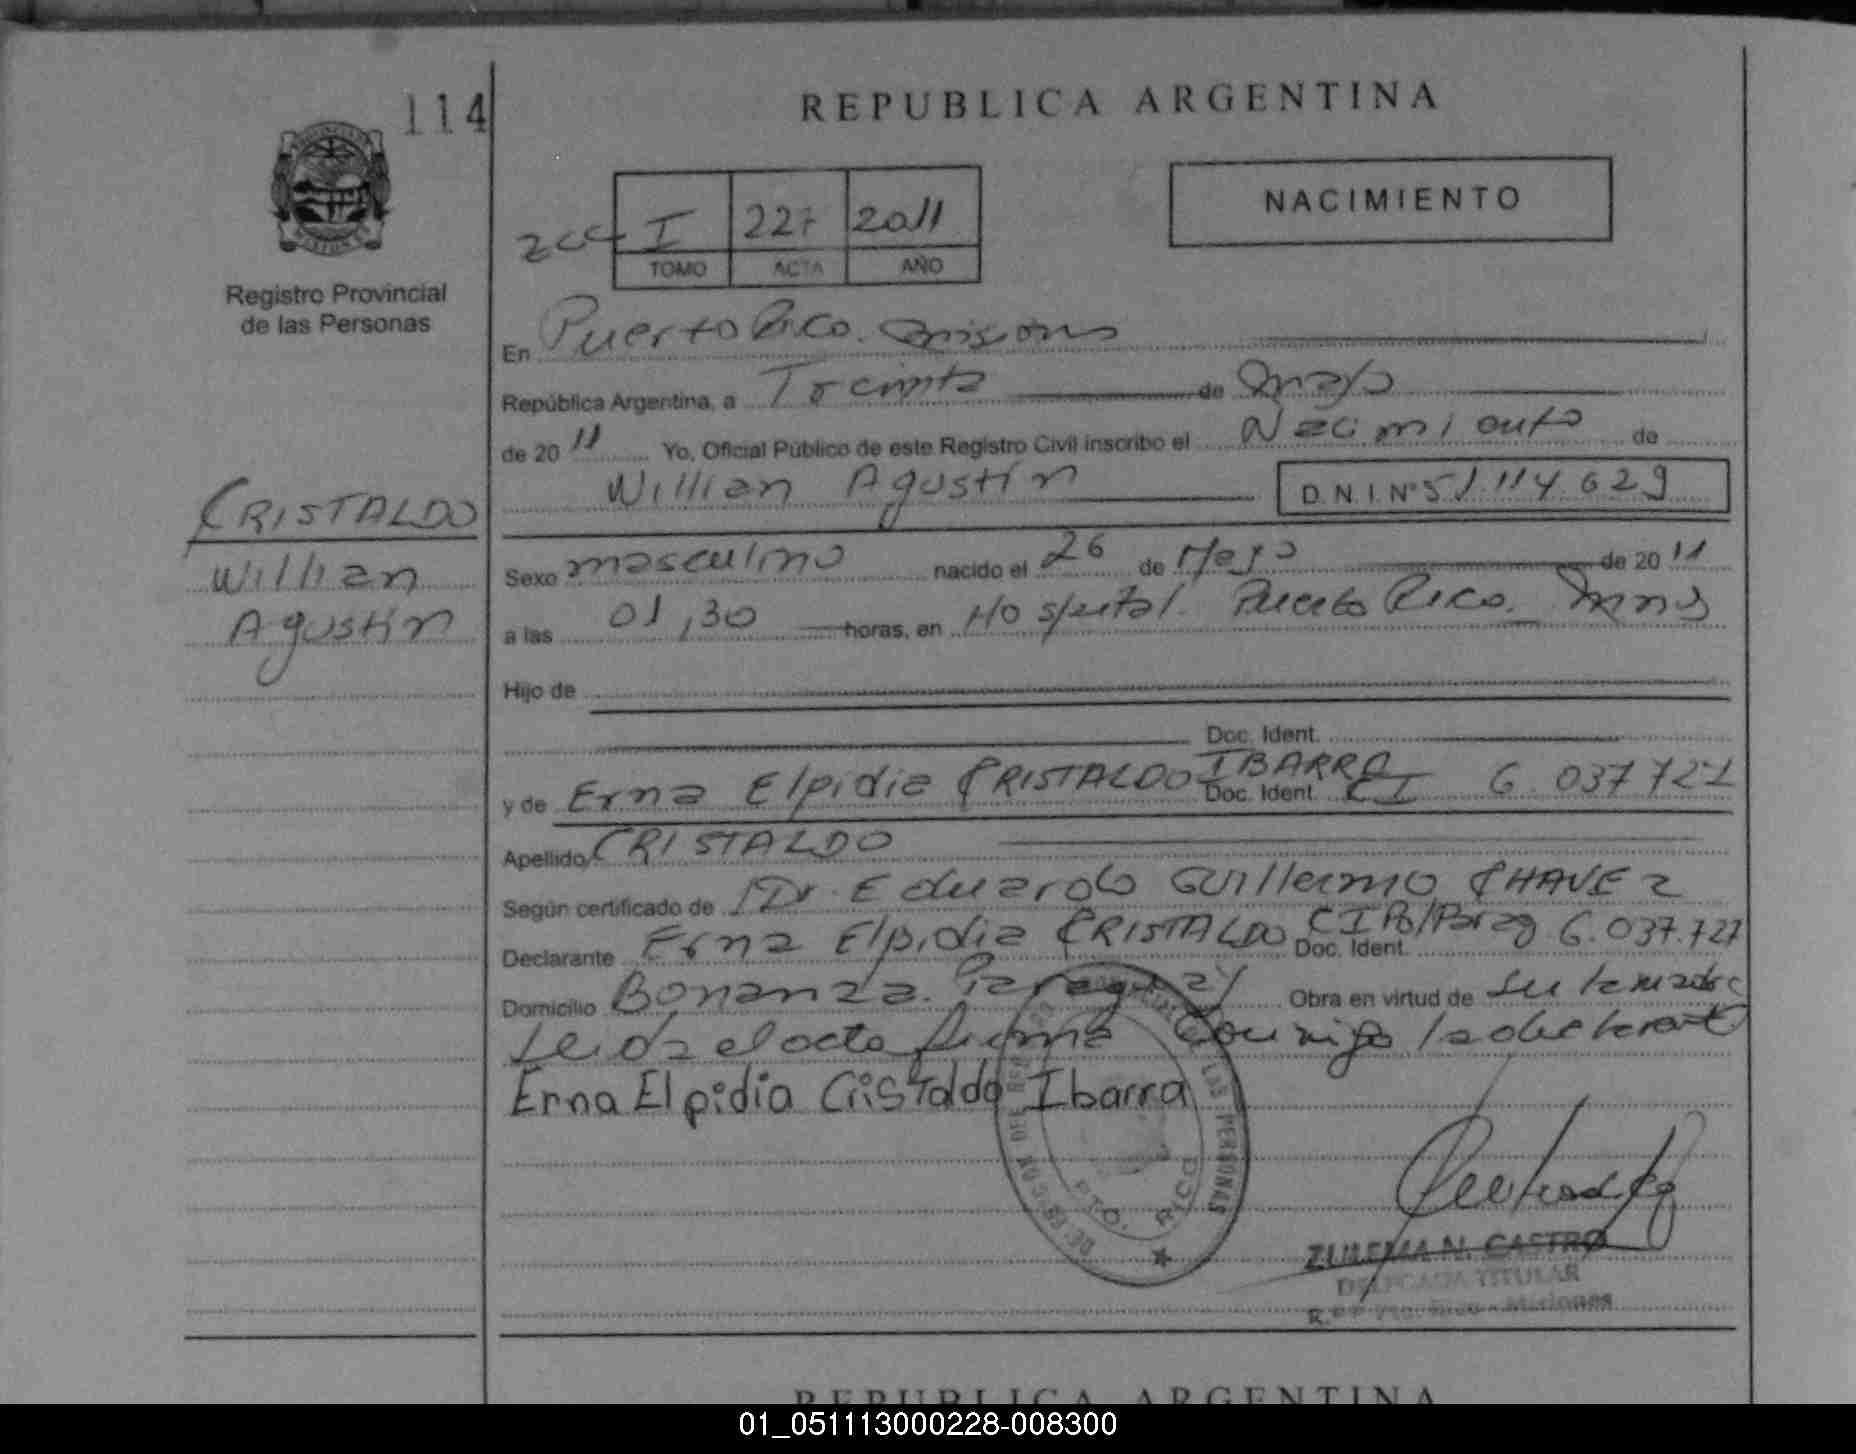 114
REPUBLICA ARGENTINA
NACIMIENTO
I 227 2011
TOMO ACTA AÑO
Registro Provincial
de las Personas
En Puerto Rico. Misiones
República Argentina, a Treinta de Mayo
de 2011 Yo, Oficial Público de este Registro Civil inscribo el Nacimiento de
Willian Agustín D.N.I.Nº 51.114.629
CRISTALDO
Willian
Agustín
Sexo masculino nacido el 26 de Mayo de 2011
a las 01,30 horas, en Hospital. Puerto Rico. Mnes
Hijo de
Doc. Ident.
y de Erna Elpidia CRISTALDO IBARRA Doc. Ident. CI 6.037727
Apellido CRISTALDO
Según certificado de Dr. Eduardo Guillermo CHAVEZ
Declarante Erna Elpidia CRISTALDO Doc. Ident. CI 6.037.727
Domicilio Bonanza. Paraguay Obra en virtud de
Leida el acta firma Conmigo la declarante
Erna Elpidia Cristaldo Ibarra
DELEGACION DEL REGISTRO PROVINCIAL DE LAS PERSONAS
PTO. RICO
ZULEMA N. CASTRO
DELEGADA TITULAR
R.P.P. Pto. Rico - Misiones
REPUBLICA ARGENTINA
01_051113000228-008300